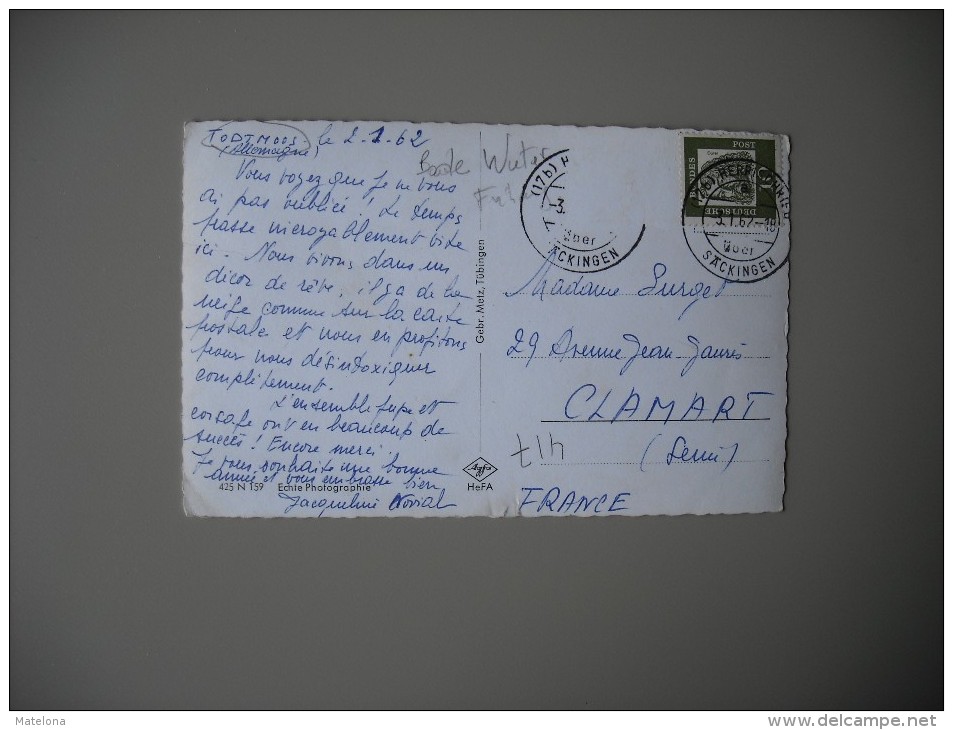 TODTMOOS le 2-1-62
(Allemagne)
Vous voyez que je ne vous
ai pas oubliée ! Le temps
passe incroyablement vite
ici. Nous vivons dans un
décor de rêve, il y a de la
neige comme sur la carte
postale et nous en profitons
pour nous désintoxiquer
complètement.
L'ensemble jupe et
corsage ont eu beaucoup de
succès ! Encore merci.
Je vous souhaite une bonne
année et vous embrasse bien
Jacqueline
425 N 159 Echte Photographie
Gebr. Metz, Tübingen
Agfa
HeFA
(17b) H
-3.
über
SÄCKINGEN
DEUTSCHE
BUNDES
POST
(17b) HERRISCHRIED
-3.1.62.-18
über
SÄCKINGEN
Madame Surget
29 Avenue Jean-Jaurès
CLAMART
(Seine)
417
FRANCE
Matelona
www.delcampe.net